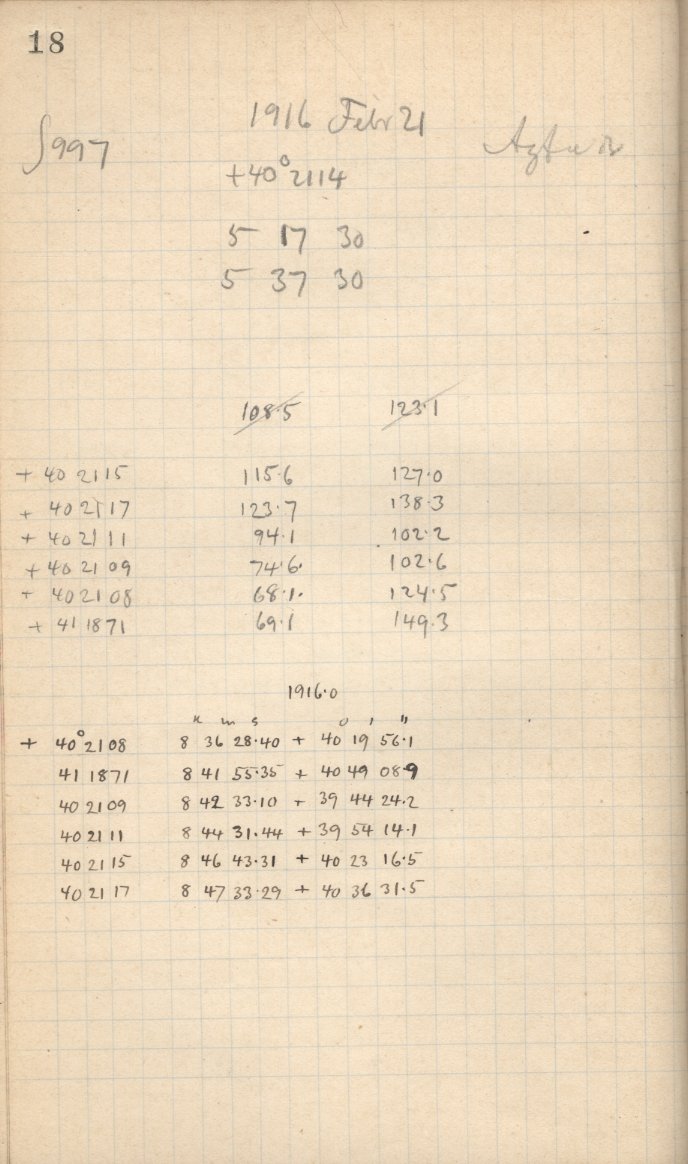 18
1916 Febr 21
∫997
+40° 2114
5 17 30
5 37 30
108.5 123.1
+ 40 2115 115.6 127.0
+ 40 2117 123.7 138.3
+ 40 2111 94.1 102.2
+ 40 2109 74.6 102.6
+ 40 2108 68.1 124.5
+ 41 1871 69.1 149.3
1916.0
h m s ° ' "
+ 40° 2108 8 36 28.40 + 40 19 56.1
41 1871 8 41 55.35 + 40 49 08.9
40 2109 8 42 33.10 + 39 44 24.2
40 2111 8 44 31.44 + 39 54 14.1
40 2115 8 46 43.31 + 40 23 16.5
40 2117 8 47 33.29 + 40 36 31.5